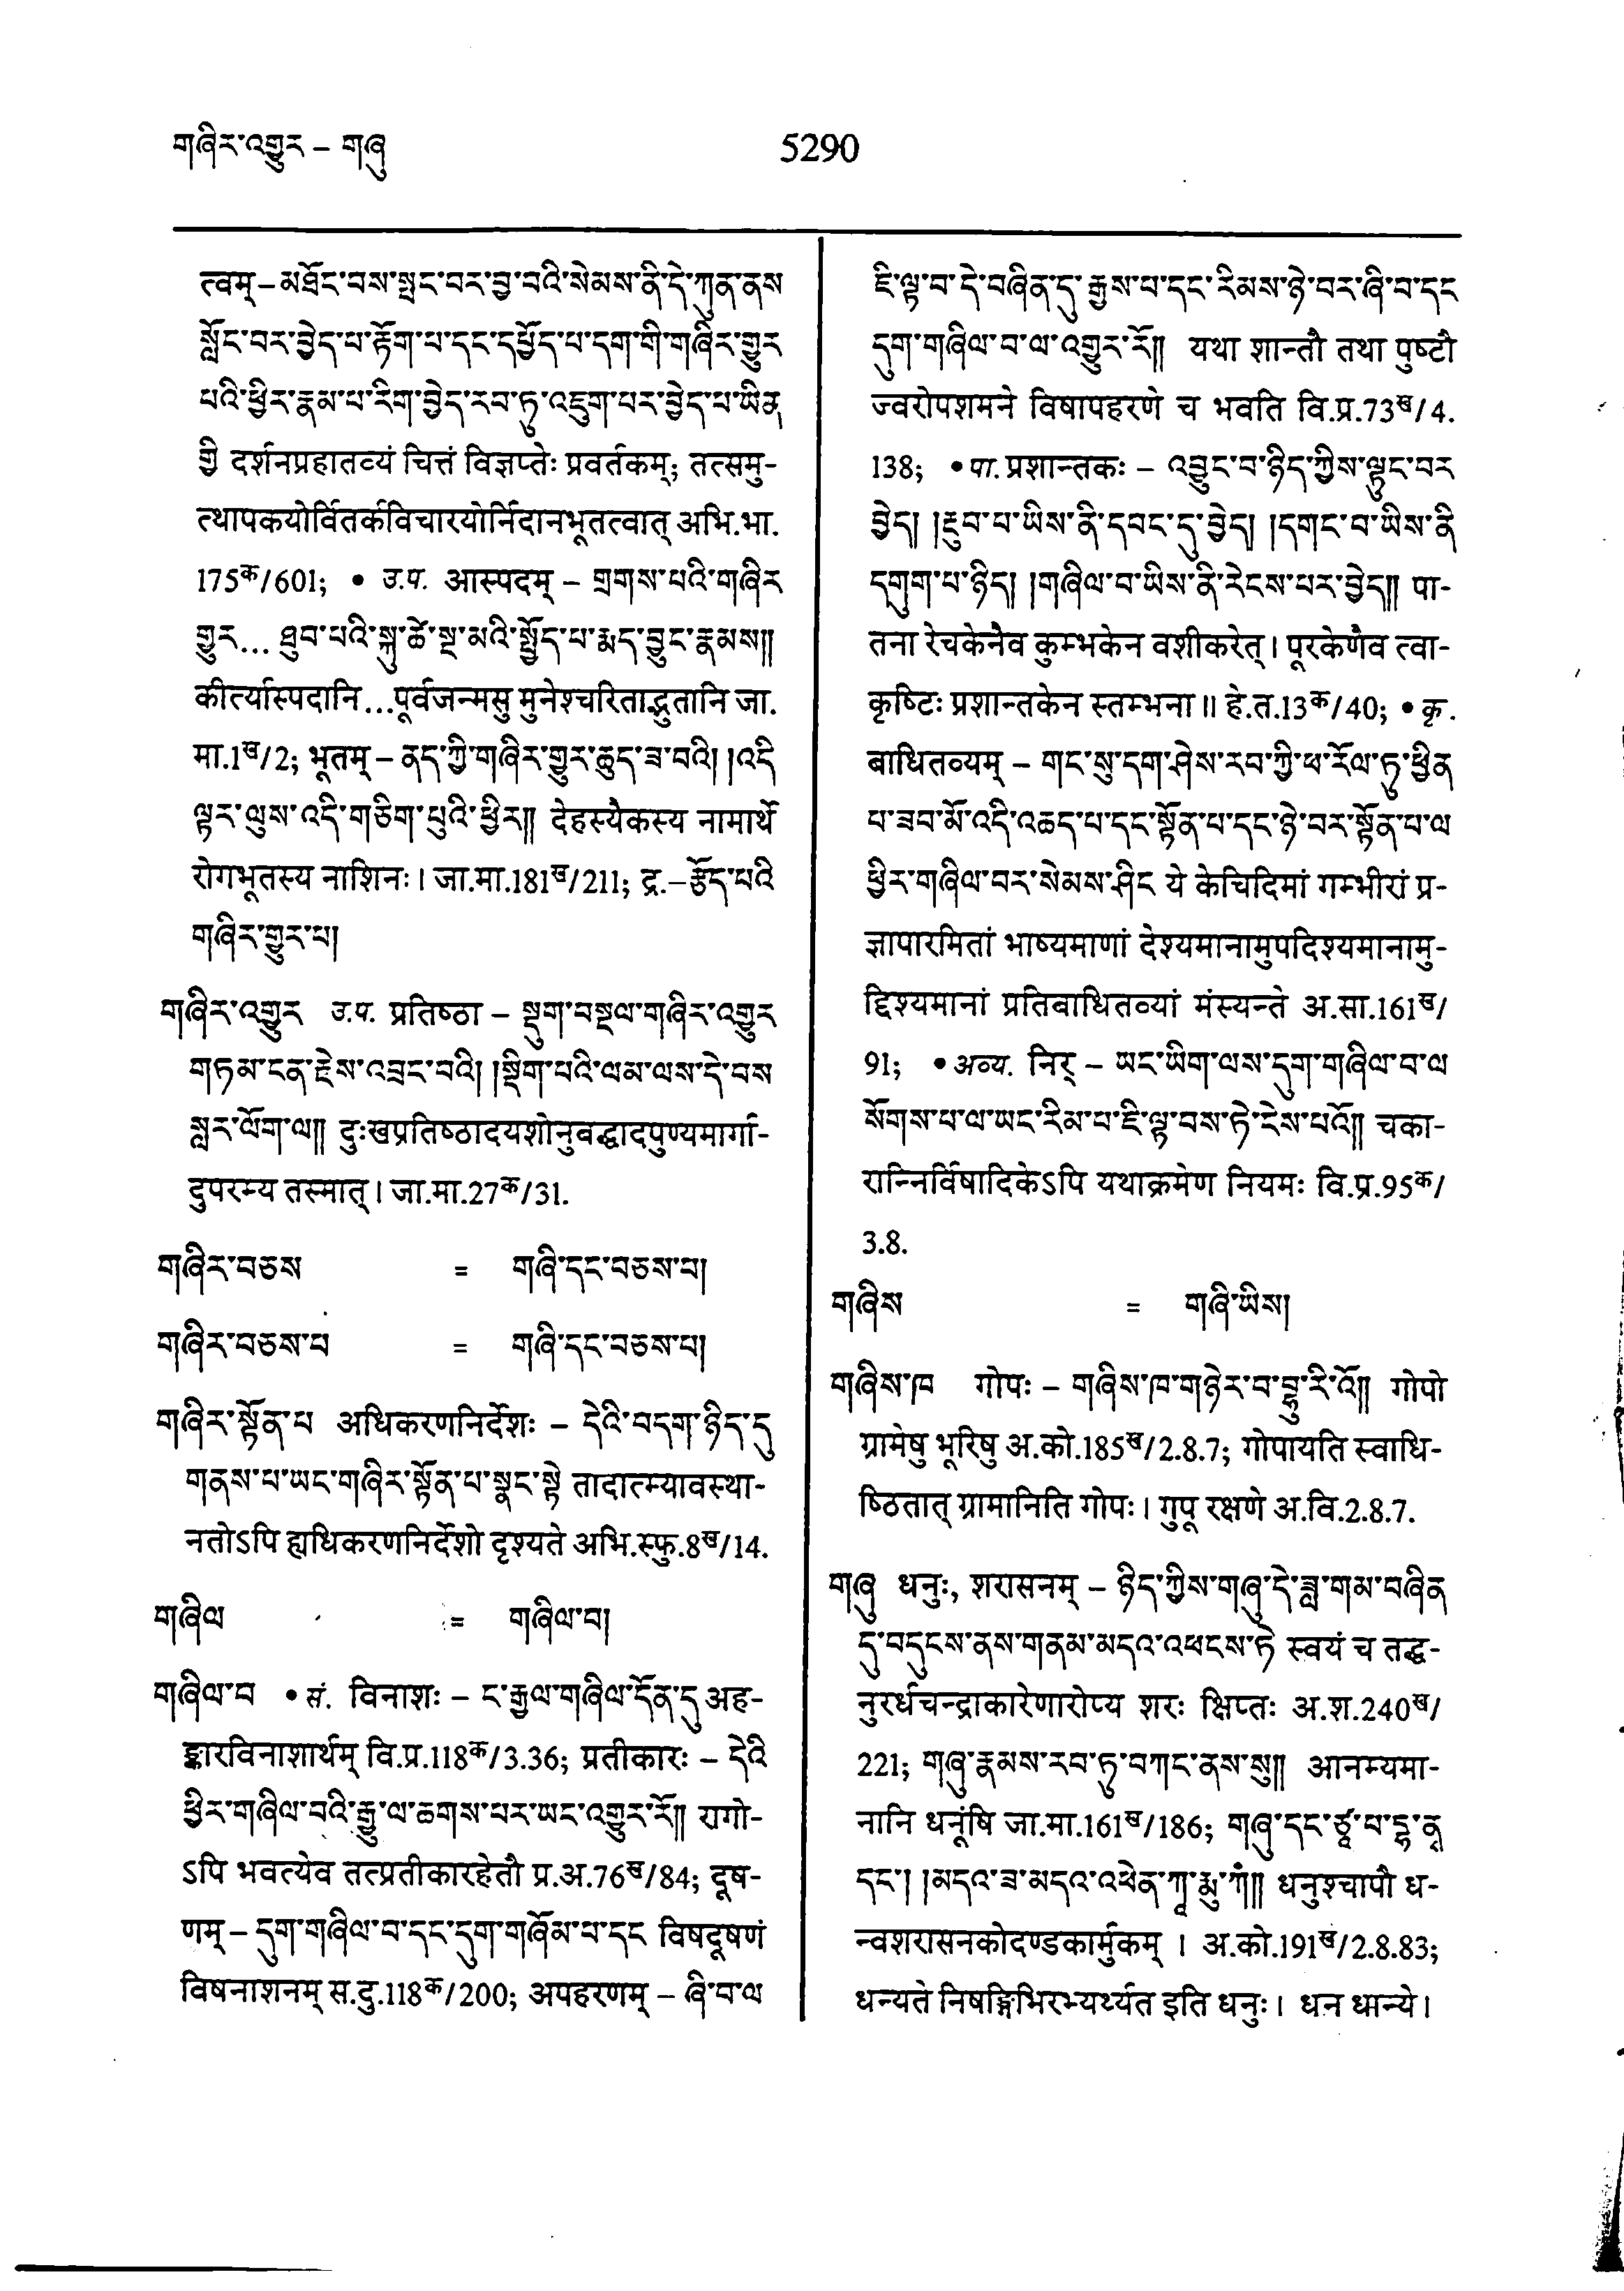 གཞིར་འགྱུར – གཞུ
5290
त्वम् – མཐོང་བས་སྤང་བར་བྱ་བའི་སེམས་ནི་དེ་ཀུན་ནས
སློང་བར་བྱེད་པ་རྟོག་པ་དང་དཔྱོད་པ་དག་གི་གཞིར་གྱུར
པའི་ཕྱིར་རྣམ་པ་རིག་བྱེད་རབ་ཏུ་འཇུག་པར་བྱེད་པ་ཡིན
གྱི दर्शनप्रहातव्यं चित्तं विज्ञप्तेः प्रवर्तकम्; तत्समु-
त्थापकयोर्वितर्कविचारयोर्निदानभूतत्वात् अभि.भा.
175क/601; • उ.प. आस्पदम् – གྲགས་པའི་གཞིར
གྱུར... ཐུབ་པའི་སྐུ་ཚེ་སྔ་མའི་སྤྱོད་པ་རྨད་བྱུང་རྣམས།།
कीर्त्यास्पदानि...पूर्वजन्मसु मुनेश्चरिताद्भुतानि जा.
मा.1ख/2; भूतम् – ནད་ཀྱི་གཞིར་གྱུར་ཆུད་ཟ་བའི། །འདི
ལྟར་ལུས་འདི་གཅིག་པུའི་ཕྱིར།། देहस्यैकस्य नामार्थे
रोगभूतस्य नाशिनः। जा.मा.181ख/211; द्र.–རྩོད་པའི
གཞིར་གྱུར་པ།
གཞིར་འགྱུར उ.प. प्रतिष्ठा – སྡུག་བསྔལ་གཞིར་འགྱུར
གཏམ་ངན་རྗེས་འབྲང་བའི། །སྡིག་པའི་ལམ་ལས་དེ་བས
སླར་ལོག་ལ།། दुःखप्रतिष्ठादयशोनुबद्धादपुण्यमार्गा-
दुपरम्य तस्मात्। जा.मा.27क/31.
གཞིར་བཅས = གཞི་དང་བཅས་པ།
གཞིར་བཅས་པ = གཞི་དང་བཅས་པ།
གཞིར་སྟོན་པ अधिकरणनिर्देशः – དེའི་བདག་ཉིད་དུ
གནས་པ་ཡང་གཞིར་སྟོན་པ་སྣང་སྟེ तादात्म्यावस्था-
नतोऽपि ह्यधिकरणनिर्देशो दृश्यते अभि.स्फु.8ख/14.
གཞིལ = གཞིལ་བ།
གཞིལ་བ • सं. विनाशः – ང་རྒྱལ་གཞིལ་དོན་དུ अह-
ङ्कारविनाशार्थम् वि.प्र.118क/3.36; प्रतीकारः – དེའི
ཕྱིར་གཞིལ་བའི་རྒྱུ་ལ་ཆགས་པར་ཡང་འགྱུར་རོ།། रागो-
ऽपि भवत्येव तत्प्रतीकारहेतौ प्र.अ.76ख/84; दूष-
णम् – དུག་གཞིལ་བ་དང་དུག་གཞོམ་པ་དང विषदूषणं
विषनाशनम् स.दु.118क/200; अपहरणम् – ཞི་བ་ལ
ཇི་ལྟ་བ་དེ་བཞིན་དུ་རྒྱས་པ་དང་རིམས་ཉེ་བར་ཞི་བ་དང
དུག་གཞིལ་བ་ལ་འགྱུར་རོ།། यथा शान्तौ तथा पुष्टौ
ज्वरोपशमने विषापहरणे च भवति वि.प्र.73ख/4.
138; • पा. प्रशान्तकः – འབྱུང་བ་ཉིད་ཀྱིས་ལྟུང་བར
བྱེད། །རྔུབ་པ་ཡིས་ནི་དབང་དུ་བྱེད། །དགང་བ་ཡིས་ནི
དགུག་པ་ཉིད། །གཞིལ་བ་ཡིས་ནི་རེངས་པར་བྱེད།། पा-
तना रेचकेनैव कुम्भकेन वशीकरेत्। पूरकेणैव त्वा-
कृष्टिः प्रशान्तकेन स्तम्भना॥ हे.त.13क/40; • कृ.
बाधितव्यम् – གང་སུ་དག་ཤེས་རབ་ཀྱི་ཕ་རོལ་ཏུ་ཕྱིན
པ་ཟབ་མོ་འདི་འཆད་པ་དང་སྟོན་པ་དང་ཉེ་བར་སྟོན་པ་ལ
ཕྱིར་གཞིལ་བར་སེམས་ཤིང ये केचिदिमां गम्भीरां प्र-
ज्ञापारमितां भाष्यमाणां देश्यमानामुपदिश्यमानामु-
द्दिश्यमानां प्रतिबाधितव्यां मंस्यन्ते अ.सा.161ख/
91; • अव्य. निर् – ཡང་ཡིག་ལས་དུག་གཞིལ་བ་ལ
སོགས་པ་ལ་ཡང་རིམ་པ་ཇི་ལྟ་བས་ཏེ་ངེས་པའོ།། चका-
रान्निर्विषादिकेऽपि यथाक्रमेण नियमः वि.प्र.95क/
3.8.
གཞིས = གཞི་ཡིས།
གཞིས་ཁ गोपः – གཞིས་ཁ་གཉེར་བ་བྷཱུ་རི་འོ།། गोपो
ग्रामेषु भूरिषु अ.को.185ख/2.8.7; गोपायति स्वाधि-
ष्ठितात् ग्रामानिति गोपः। गुपू रक्षणे अ.वि.2.8.7.
གཞུ धनुः, शरासनम् – ཉིད་ཀྱིས་གཞུ་དེ་ཟླ་གམ་བཞིན
དུ་བདུངས་ནས་གནམ་མདའ་འཕངས་ཏེ स्वयं च तद्ध-
नुरर्धचन्द्राकारेणारोप्य शरः क्षिप्तः अ.श.240ख/
221; གཞུ་རྣམས་རབ་ཏུ་བཀང་ནས་སུ།། आनम्यमा-
नानि धनूंषि जा.मा.161ख/186; གཞུ་དང་ཙཱ་པ་དྷ་ནྭ
དང་། །མདའ་ཟ་མདའ་འཕེན་ཀཱ་རྨུ་ཀཾ།། धनुश्चापौ ध-
न्वशरासनकोदण्डकार्मुकम् । अ.को.191ख/2.8.83;
धन्यते निषङ्गिभिरभ्यर्थ्यत इति धनुः। धन धान्ये।